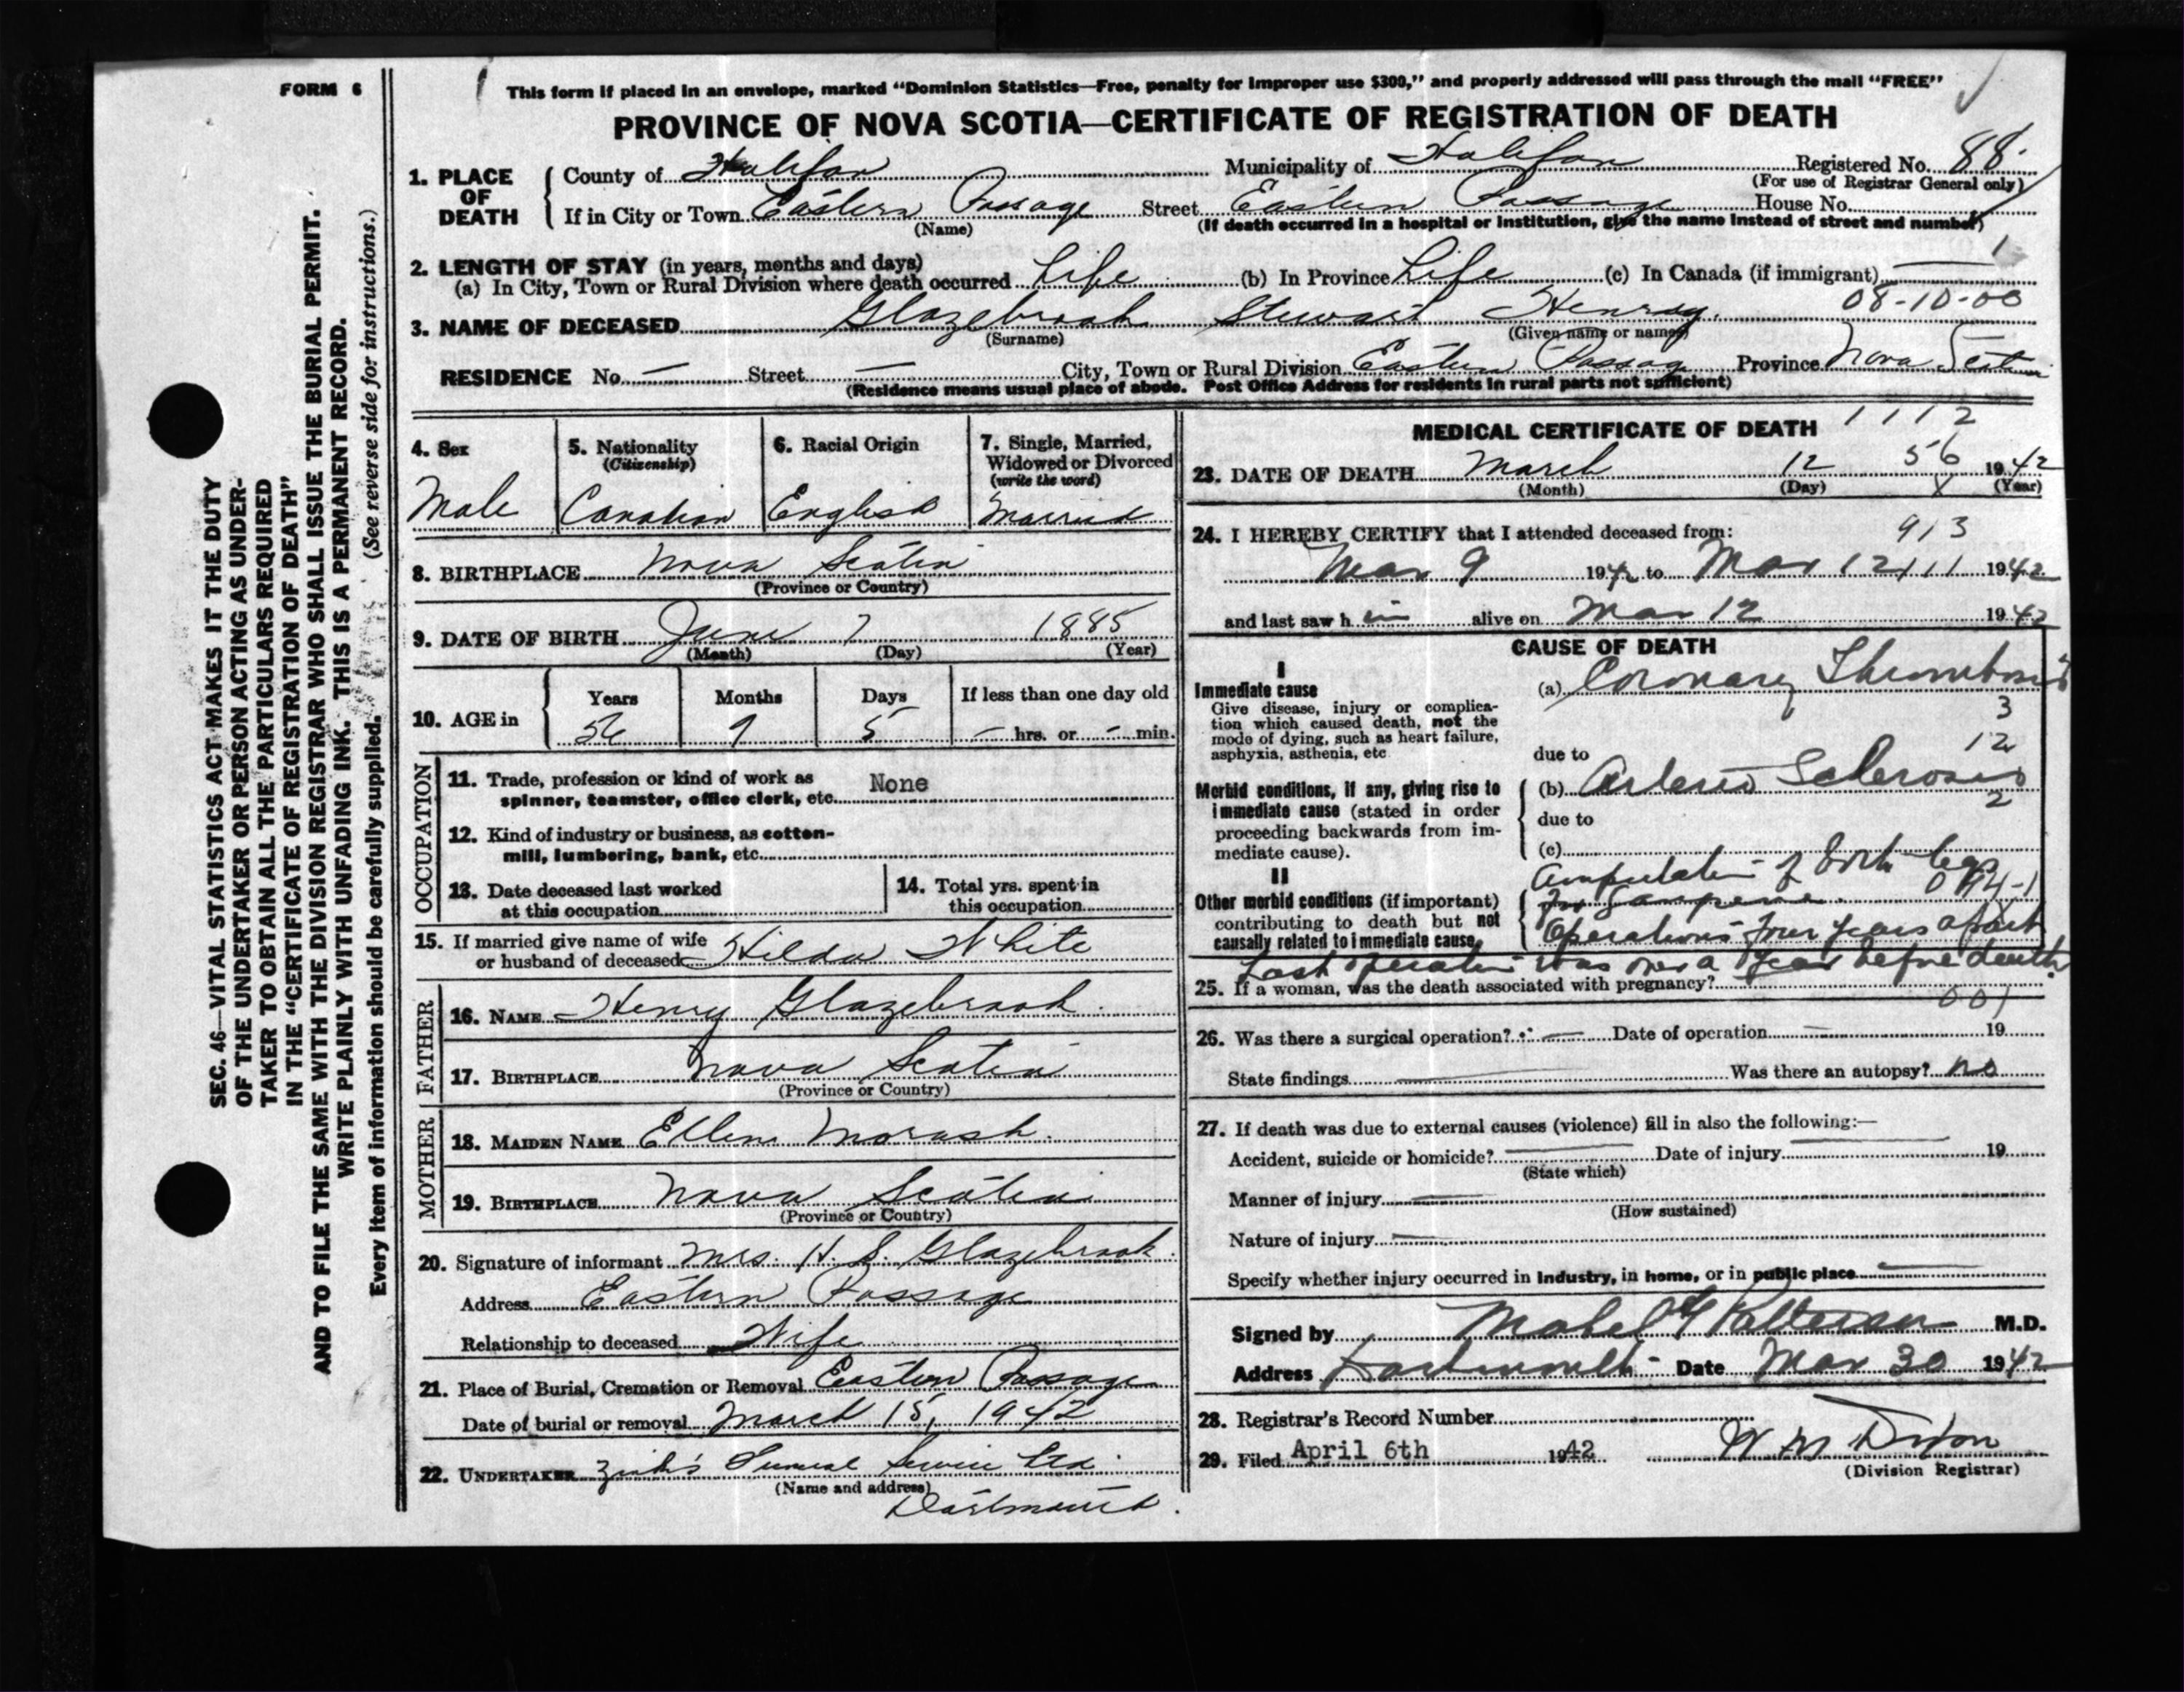 FORM 6
This form if placed in an envelope, marked “Dominion Statistics—Free, penalty for improper use $300,” and properly addressed will pass through the mail “FREE”
PROVINCE OF NOVA SCOTIA—CERTIFICATE OF REGISTRATION OF DEATH
1. PLACE OF DEATH
County of Halifax Municipality of Halifax Registered No. 88.
(For use of Registrar General only)
If in City or Town Eastern Passage Street Eastern Passage House No.
(Name) (If death occurred in a hospital or institution, give the name instead of street and number)
1
2. LENGTH OF STAY (in years, months and days)
(a) In City, Town or Rural Division where death occurred Life (b) In Province Life (c) In Canada (if immigrant) —
08-10-00
3. NAME OF DECEASED Glazebrook Stewart Henry.
(Surname) (Given name or names)
RESIDENCE No. — Street — City, Town or Rural Division Eastern Passage Province Nova Scotia
(Residence means usual place of abode. Post Office Address for residents in rural parts not sufficient)
4. Sex
Male
5. Nationality
(Citizenship)
Canadian
6. Racial Origin
English
7. Single, Married,
Widowed or Divorced
(write the word)
Married
8. BIRTHPLACE Nova Scotia
(Province or Country)
9. DATE OF BIRTH June 7 1885
(Month) (Day) (Year)
10. AGE in
Years Months Days If less than one day old
56 9 5 — hrs. or — min.
OCCUPATION
11. Trade, profession or kind of work as
spinner, teamster, office clerk, etc. None
12. Kind of industry or business, as cotton-
mill, lumbering, bank, etc.
13. Date deceased last worked
at this occupation
14. Total yrs. spent in
this occupation
15. If married give name of wife
or husband of deceased Hilda White
FATHER
16. NAME Henry Glazebrook.
17. BIRTHPLACE Nova Scotia
(Province or Country)
MOTHER
18. MAIDEN NAME Ellen Morash.
19. BIRTHPLACE Nova Scotia
(Province or Country)
20. Signature of informant Mrs. H. S. Glazebrook.
Address Eastern Passage
Relationship to deceased Wife
21. Place of Burial, Cremation or Removal Eastern Passage
Date of burial or removal March 15, 1942
22. UNDERTAKER Zink's Funeral Service Ltd.
(Name and address)
Dartmouth.
MEDICAL CERTIFICATE OF DEATH 1112
56
23. DATE OF DEATH March 12 1942
(Month) (Day) X (Year)
24. I HEREBY CERTIFY that I attended deceased from: 913
Mar 9 1942 to Mar 12 11 1942
and last saw him alive on Mar 12 1942
CAUSE OF DEATH
I
Immediate cause
Give disease, injury or complica-
tion which caused death, not the
mode of dying, such as heart failure,
asphyxia, asthenia, etc
(a) Coronary Thrombosis
3
12
due to
Morbid conditions, if any, giving rise to
immediate cause (stated in order
proceeding backwards from im-
mediate cause).
(b) Arterio Sclerosis
2
due to
(c)
II
Other morbid conditions (if important)
contributing to death but not
causally related to immediate cause.
Amputation of both legs
for gangrene.
Operations four years apart
Last operation was over a year before death.
25. If a woman, was the death associated with pregnancy?
001
26. Was there a surgical operation? — Date of operation — 19
State findings — Was there an autopsy? no
27. If death was due to external causes (violence) fill in also the following:—
Accident, suicide or homicide? — Date of injury — 19
(State which)
Manner of injury —
(How sustained)
Nature of injury —
Specify whether injury occurred in industry, in home, or in public place —
Signed by Mabel G Patterson M.D.
Address Dartmouth - Date Mar 30 1942
28. Registrar's Record Number
29. Filed April 6th 1942 W M Dixon
(Division Registrar)
SEC. 46—VITAL STATISTICS ACT MAKES IT THE DUTY
OF THE UNDERTAKER OR PERSON ACTING AS UNDER-
TAKER TO OBTAIN ALL THE PARTICULARS REQUIRED
IN THE “CERTIFICATE OF REGISTRATION OF DEATH”
AND TO FILE THE SAME WITH THE DIVISION REGISTRAR WHO SHALL ISSUE THE BURIAL PERMIT.
WRITE PLAINLY WITH UNFADING INK. THIS IS A PERMANENT RECORD.
Every item of information should be carefully supplied. (See reverse side for instructions.)